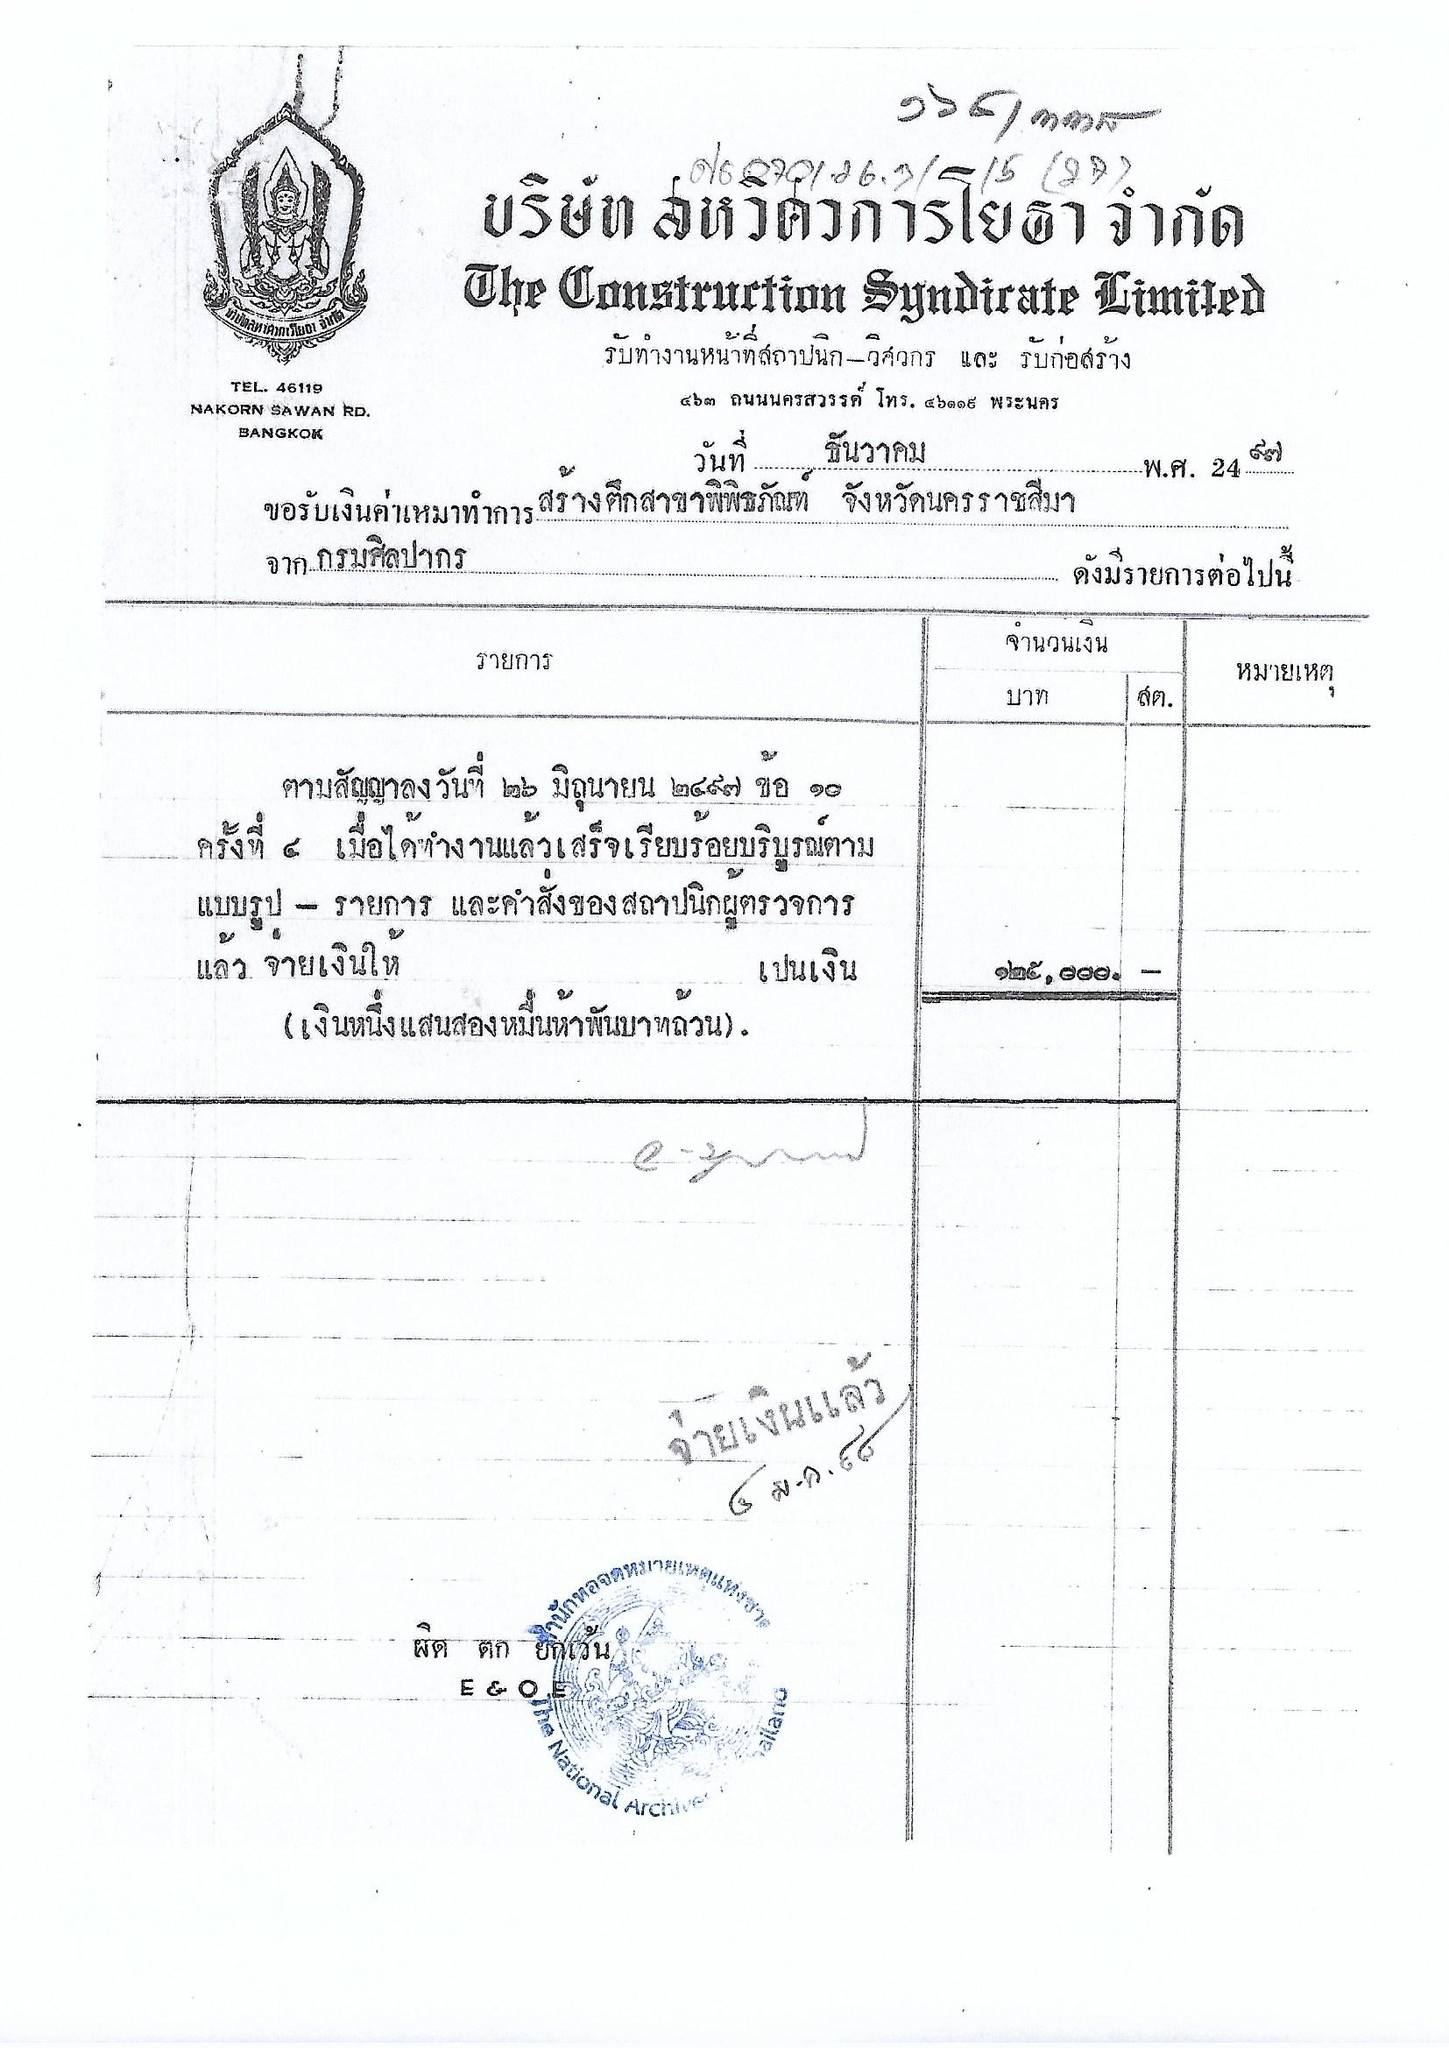 บริษัท สหวิศวการโยธา จำกัด
The Construction Syndicate Limited
รับทำงานหน้าที่สถาปนิก–วิศวกร และ รับก่อสร้าง
๔๖๓ ถนนนครสวรรค์ โทร. ๔๖๑๑๙ พระนคร
บริษัทสหวิศวการโยธา จำกัด
TEL. 46119
NAKORN SAWAN RD.
BANGKOK
วันที่ ธันวาคม พ.ศ. 24๙๗
ขอรับเงินค่าเหมาทำการสร้างตึกสาขาพิพิธภัณฑ์ จังหวัดนครราชสีมา
จากกรมศิลปากร ดังมีรายการต่อไปนี้
รายการ จำนวนเงิน หมายเหตุ
บาท สต.
ตามสัญญาลงวันที่ ๒๖ มิถุนายน ๒๔๙๗ ข้อ ๑๐
ครั้งที่ ๔ เมื่อได้ทำงานแล้วเสร็จเรียบร้อยบริบูรณ์ตาม
แบบรูป – รายการ และคำสั่งของสถาปนิกผู้ตรวจการ
แล้ว จ่ายเงินให้ เปนเงิน ๑๒๕,๐๐๐. –
(เงินหนึ่งแสนสองหมื่นห้าพันบาทถ้วน).
จ่ายเงินแล้ว
๔ ม.ค. ๙๘
สำนักหอจดหมายเหตุแห่งชาติ
ผิด ตก ยกเว้น
E & O.E
The National Archives Thailand